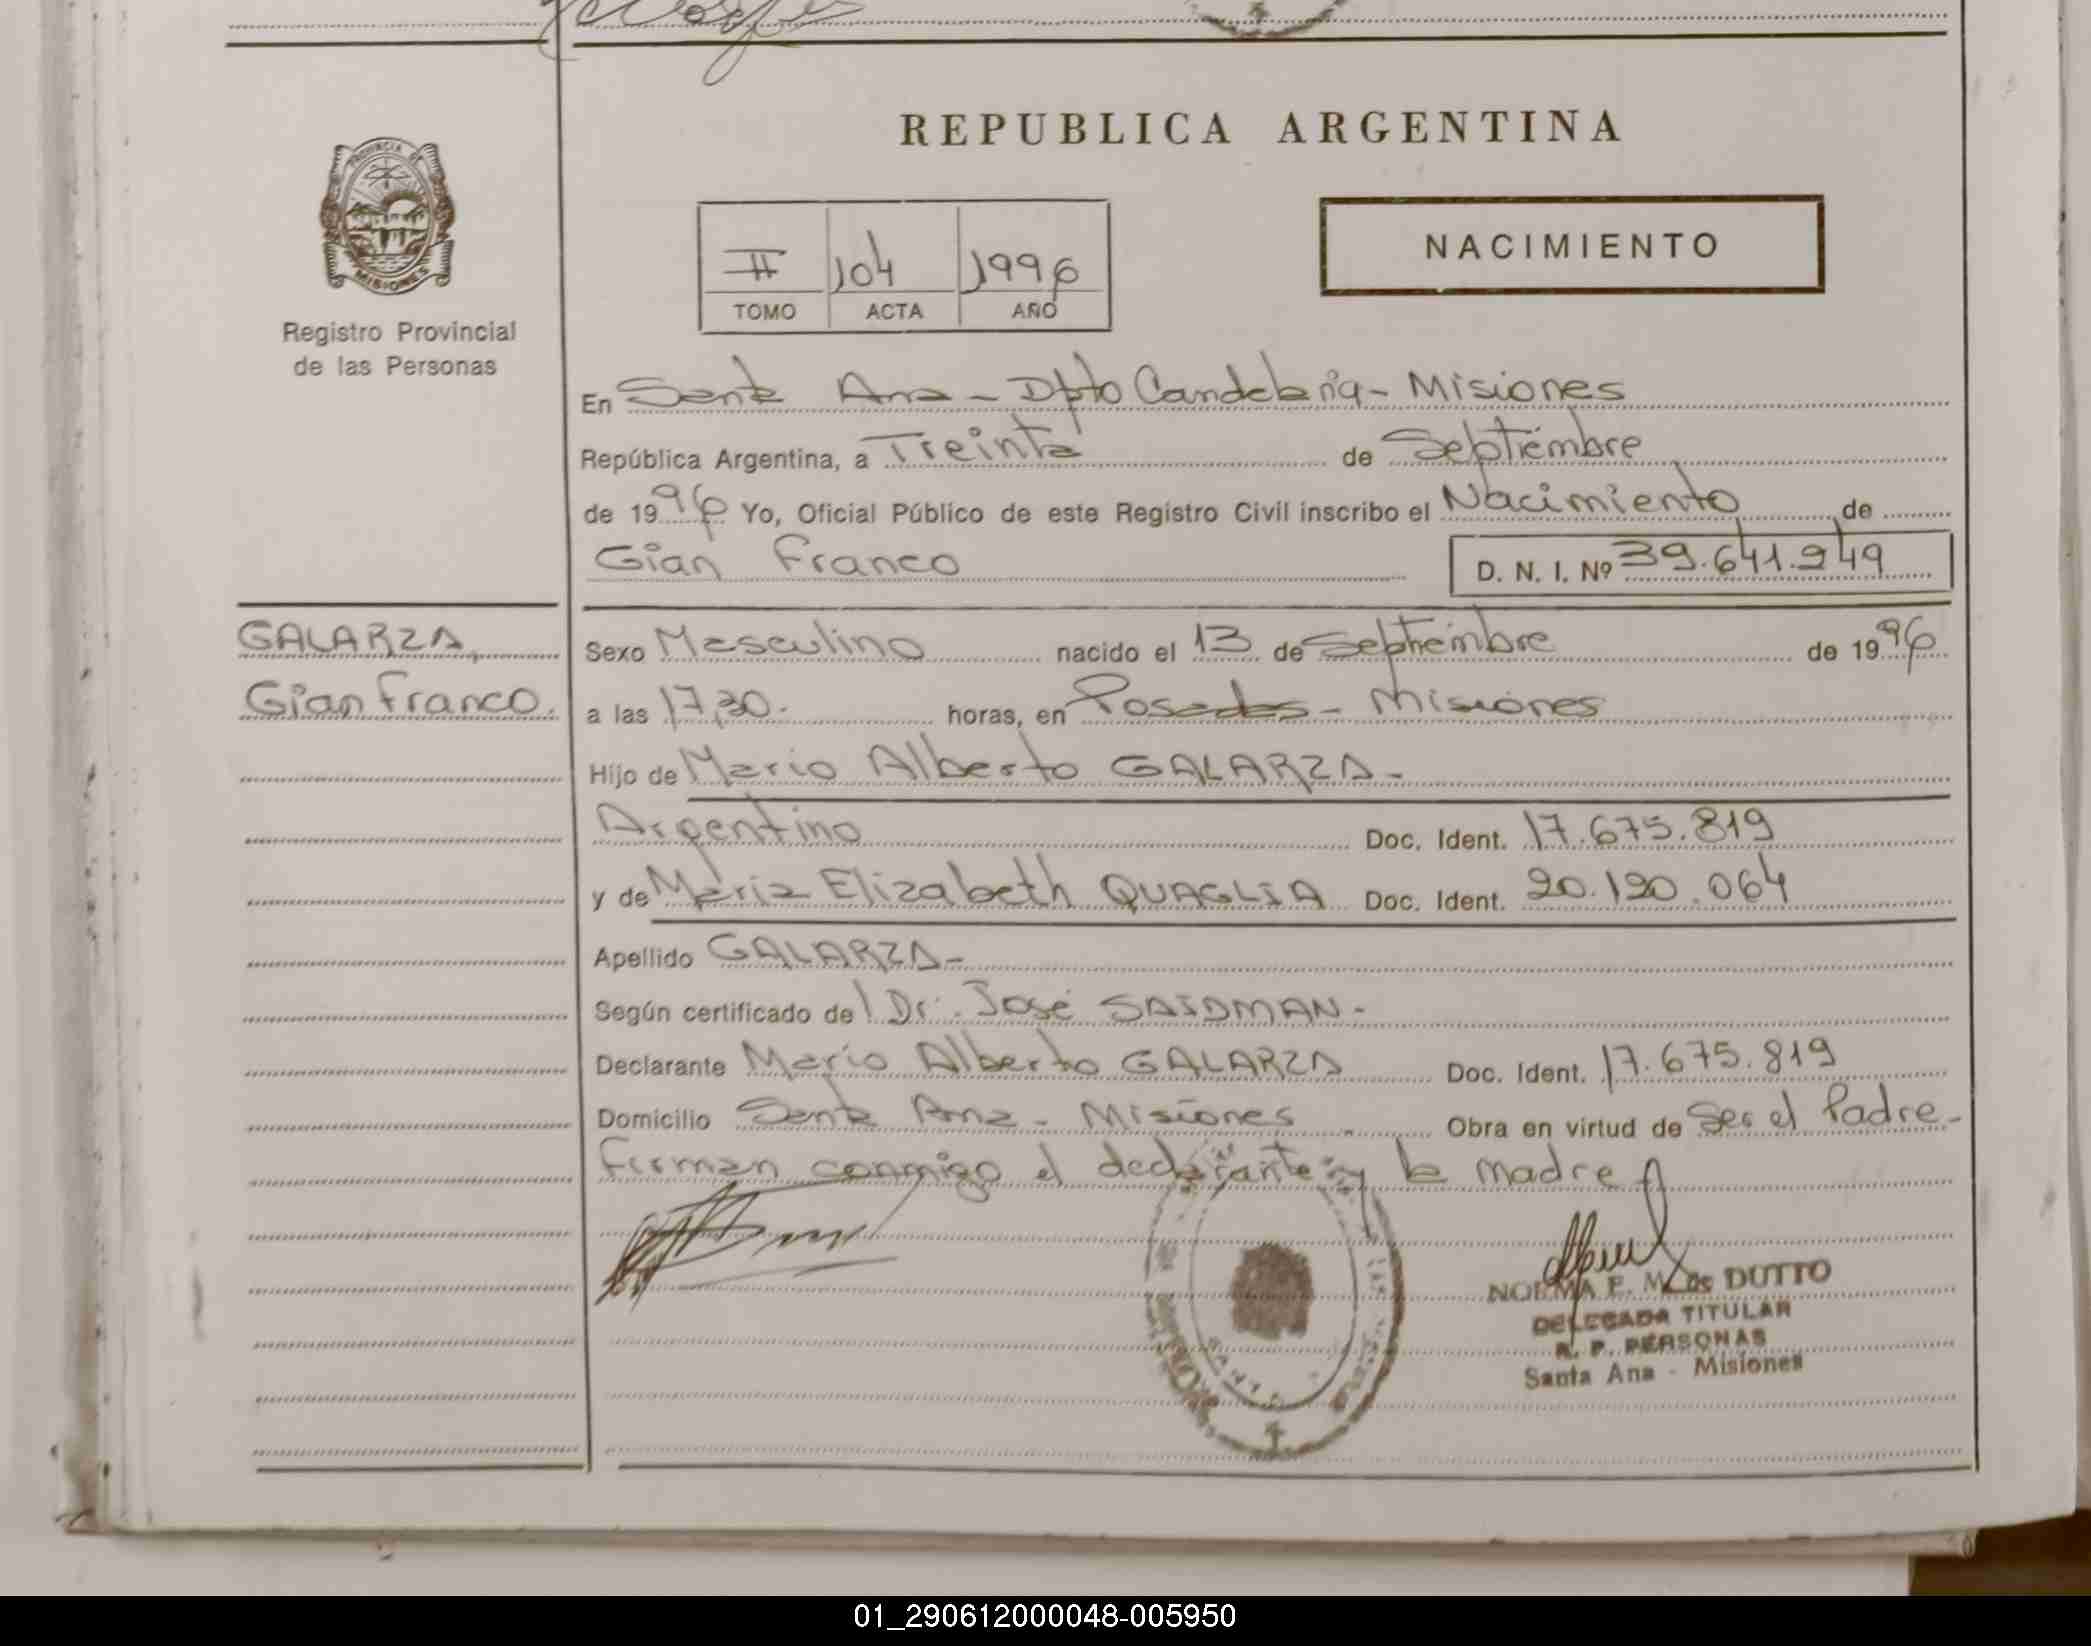 REPUBLICA ARGENTINA
PROVINCIA DE
MISIONES
Registro Provincial
de las Personas
II 104 1996
TOMO ACTA AÑO
NACIMIENTO
En Santa Ana - Dpto Candelaria - Misiones
República Argentina, a Treinta de Septiembre
de 1996 Yo, Oficial Público de este Registro Civil inscribo el Nacimiento de
Gian Franco D. N. I. Nº 39.641.249
GALARZA,
Gian Franco.
Sexo Masculino nacido el 13 de Septiembre de 1996
a las 17,30. horas, en Posadas - Misiones
Hijo de Mario Alberto GALARZA -
Argentino Doc. Ident. 17.675.819
y de María Elizabeth QUAGLIA Doc. Ident. 20.120.064
Apellido GALARZA -
Según certificado de l Dr. José SAIDMAN -
Declarante Mario Alberto GALARZA Doc. Ident. 17.675.819
Domicilio Santa Ana - Misiones Obra en virtud de Ser el Padre -
Firman conmigo el declarante y la madre
NORMA E. M. de DUTTO
DELEGADA TITULAR
R. P. PERSONAS
Santa Ana - Misiones
01_290612000048-005950